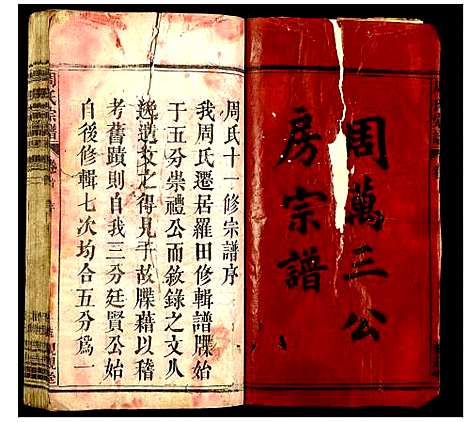 周萬三公
房宗譜
周氏十一修宗譜序
我周氏遷居羅田修輯譜牒始
于五分崇禮公而敘錄之文人
逸遺文之得見于故牒藉以稽
考舊蹟則自我三分廷賢公始
自後修輯七次均合五分爲一
周氏宗譜